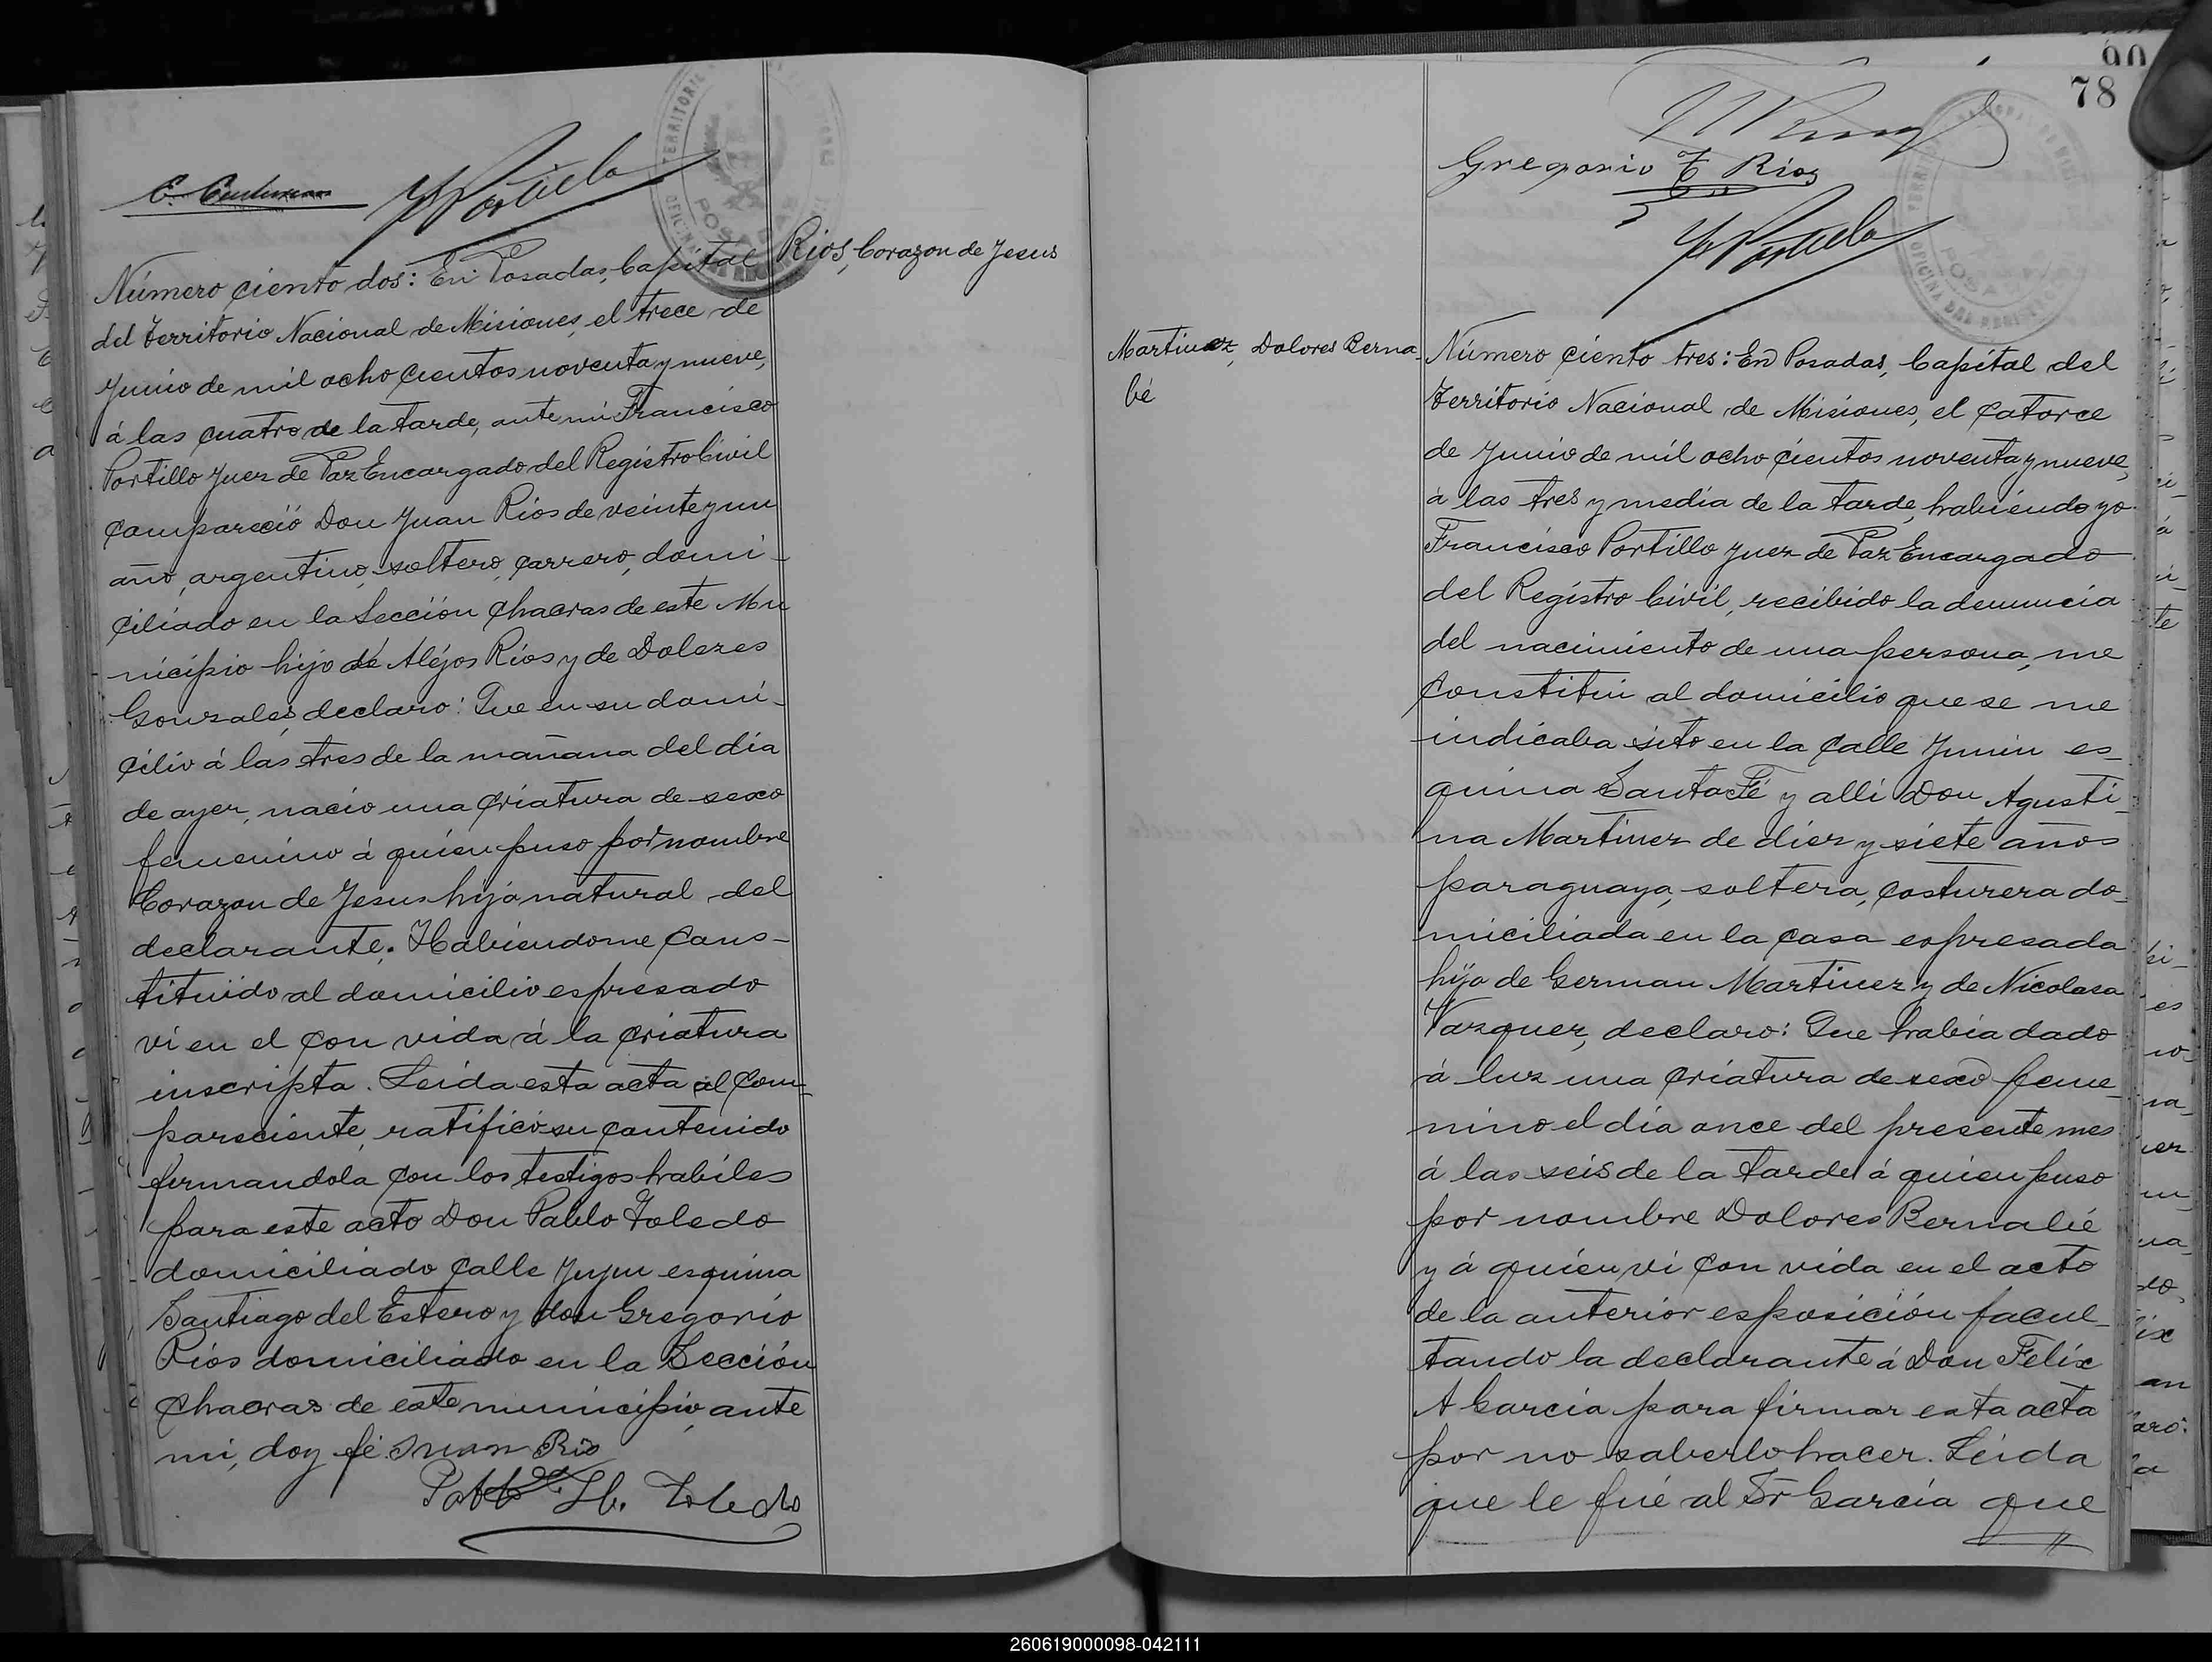 Rios, Corazon de Jesus
Número ciento dos: En Posadas, Capital
del Territorio Nacional de Misiones, el trece de
Junio de mil ocho cientos noventa y nueve,
á las cuatro de la tarde, ante mi Francisco
Portillo Juez de Paz Encargado del Registro Civil
compareció Don Juan Rios de veinte y un
año, argentino, soltero, carrero, domi-
ciliado en la Sección Chacras de este Mu
nicipio hijo de Aléjos Rios y de Dolores
Gonzales, declaro: Que en su domi-
cilio á las tres de la mañana del dia
de ayer, nacio una criatura de sexo
femenino á quien puso por nombre
Corazon de Jesus hija natural del
declarante. Habiendome cons-
tituido al domicilio espresado
vi en el con vida á la criatura
inscripta. Leida esta acta al com-
pareciente, ratificó su contenido
firmandola con los testigos habiles
para este acto Don Pablo Toledo
domiciliado calle Jujuy esquina
Santiago del Estero y don Gregorio
Rios domiciliado en la Sección
Chacras de este municipio, ante
mi, doy fé. Juan Rio
Pablo Toledo
90
78
Gregorio T Rios
Martinez, Dolores Berna-
bé
Número ciento tres: En Posadas, Capital del
Territorio Nacional de Misiones, el catorce
de Junio de mil ocho cientos noventa y nueve,
á las tres y media de la tarde, habiendo yo
Francisco Portillo Juez de Paz Encargado
del Registro Civil, recibido la denuncia
del nacimiento de una persona, me
constitui al domicilio que se me
indicaba sito en la calle Junin es-
quina Santa Fé y alli Don Agusti-
na Martinez de diez y siete años
paraguaya, soltera, costurera do-
miciliada en la casa espresada
hija de German Martinez y de Nicolasa
Vazquez, declaro: Que habia dado
á luz una criatura de sexo feme-
nino el dia once del presente mes
á las seis de la tarde á quien puso
por nombre Dolores Bernabé
y á quien vi con vida en el acto
de la anterior esposición facul-
tando la declarante á Don Felix
A Garcia para firmar esta acta
por no saberlo hacer. Leida
que le fué al Sr Garcia que
260619000098-042111